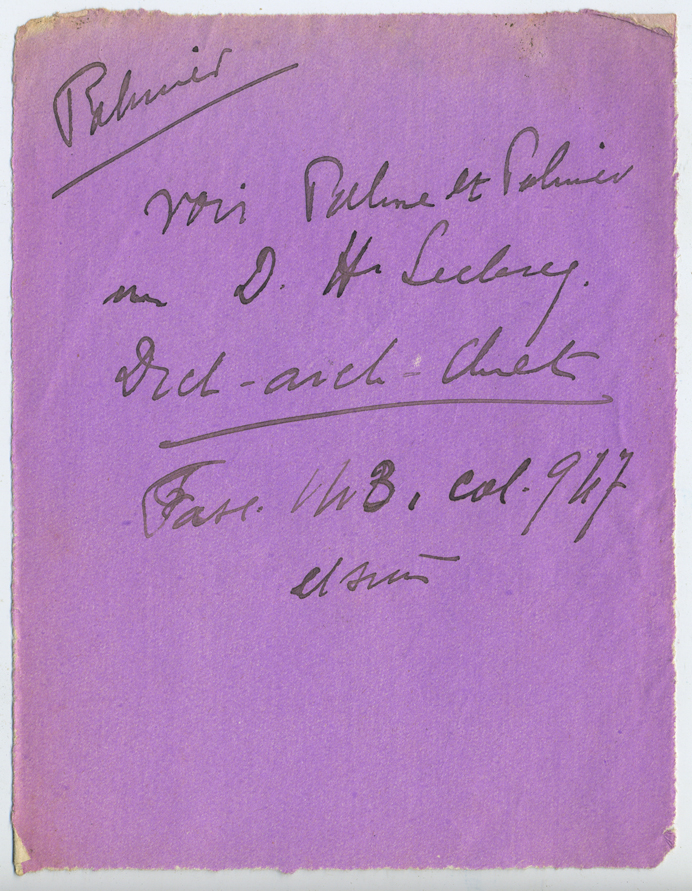 Palmier
voir Palme et Palmier
D. H. Leclercq.
Dict - arch - Chret
Fasc. 143, col. 947
et suiv